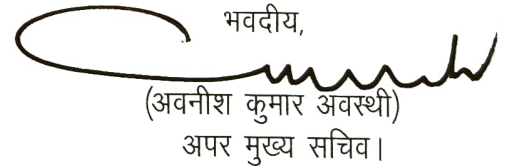 भवदीय,
(अवनीश कुमार अवस्थी)
अपर मुख्य सचिव।